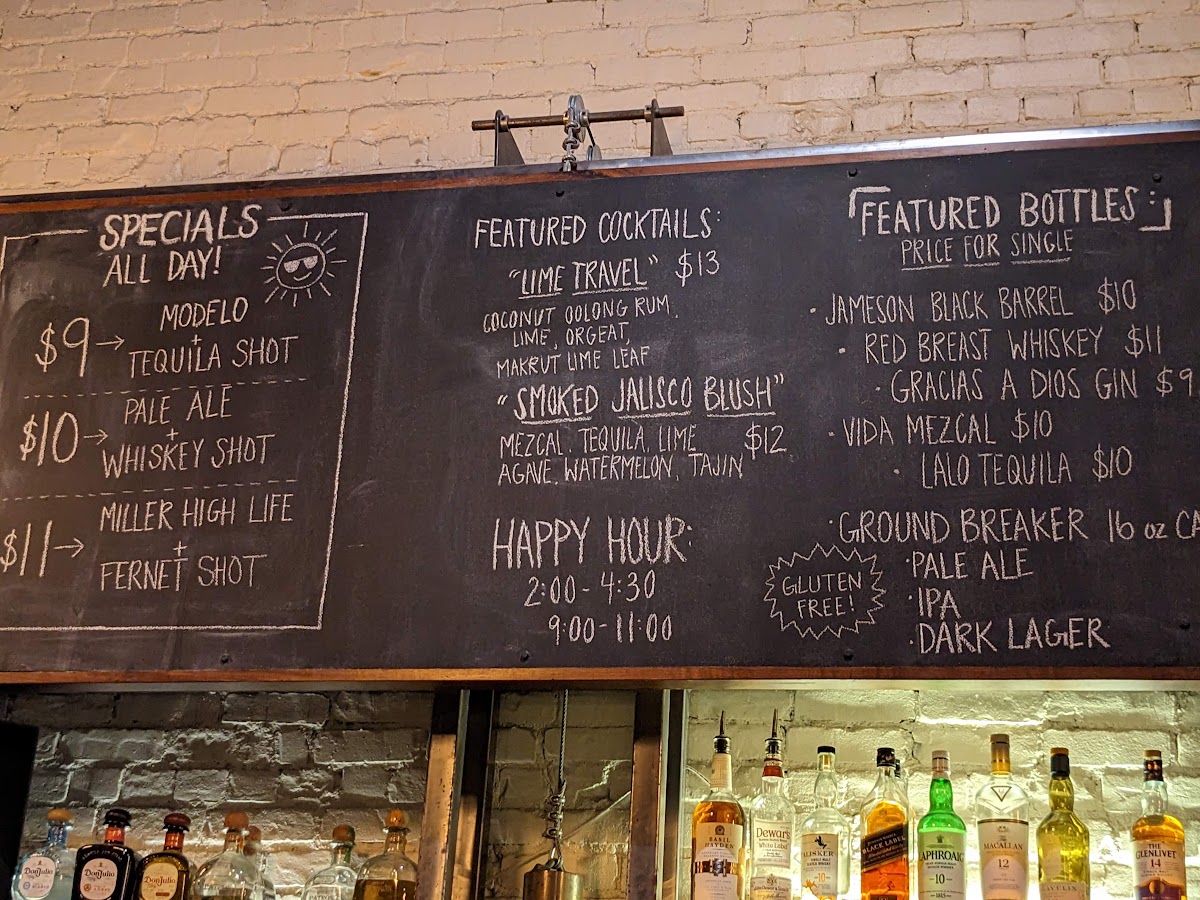 SPECIALS
ALL DAY!
$9 → MODELO
+
TEQUILA SHOT
$10 → PALE ALE
+
WHISKEY SHOT
$11 → MILLER HIGH LIFE
+
FERNET SHOT
FEATURED COCKTAILS:
"LIME TRAVEL" $13
COCONUT OOLONG RUM,
LIME, ORGEAT,
MAKRUT LIME LEAF
"SMOKED JALISCO BLUSH"
MEZCAL, TEQUILA, LIME $12
AGAVE, WATERMELON, TAJIN
HAPPY HOUR:
2:00-4:30
9:00-11:00
FEATURED BOTTLES:
PRICE FOR SINGLE
· JAMESON BLACK BARREL $10
· RED BREAST WHISKEY $11
· GRACIAS A DIOS GIN $9
· VIDA MEZCAL $10
· LALO TEQUILA $10
· GROUND BREAKER 16 oz CA
GLUTEN
FREE!
· PALE ALE
· IPA
· DARK LAGER
Don Julio
Don Julio
Don Julio
BASIL
HAYDEN
Dewar's
White Label
TALISKER
10
BLACK LABEL
LAPHROAIG
10
THE
MACALLAN
12
THE
GLENLIVET
14